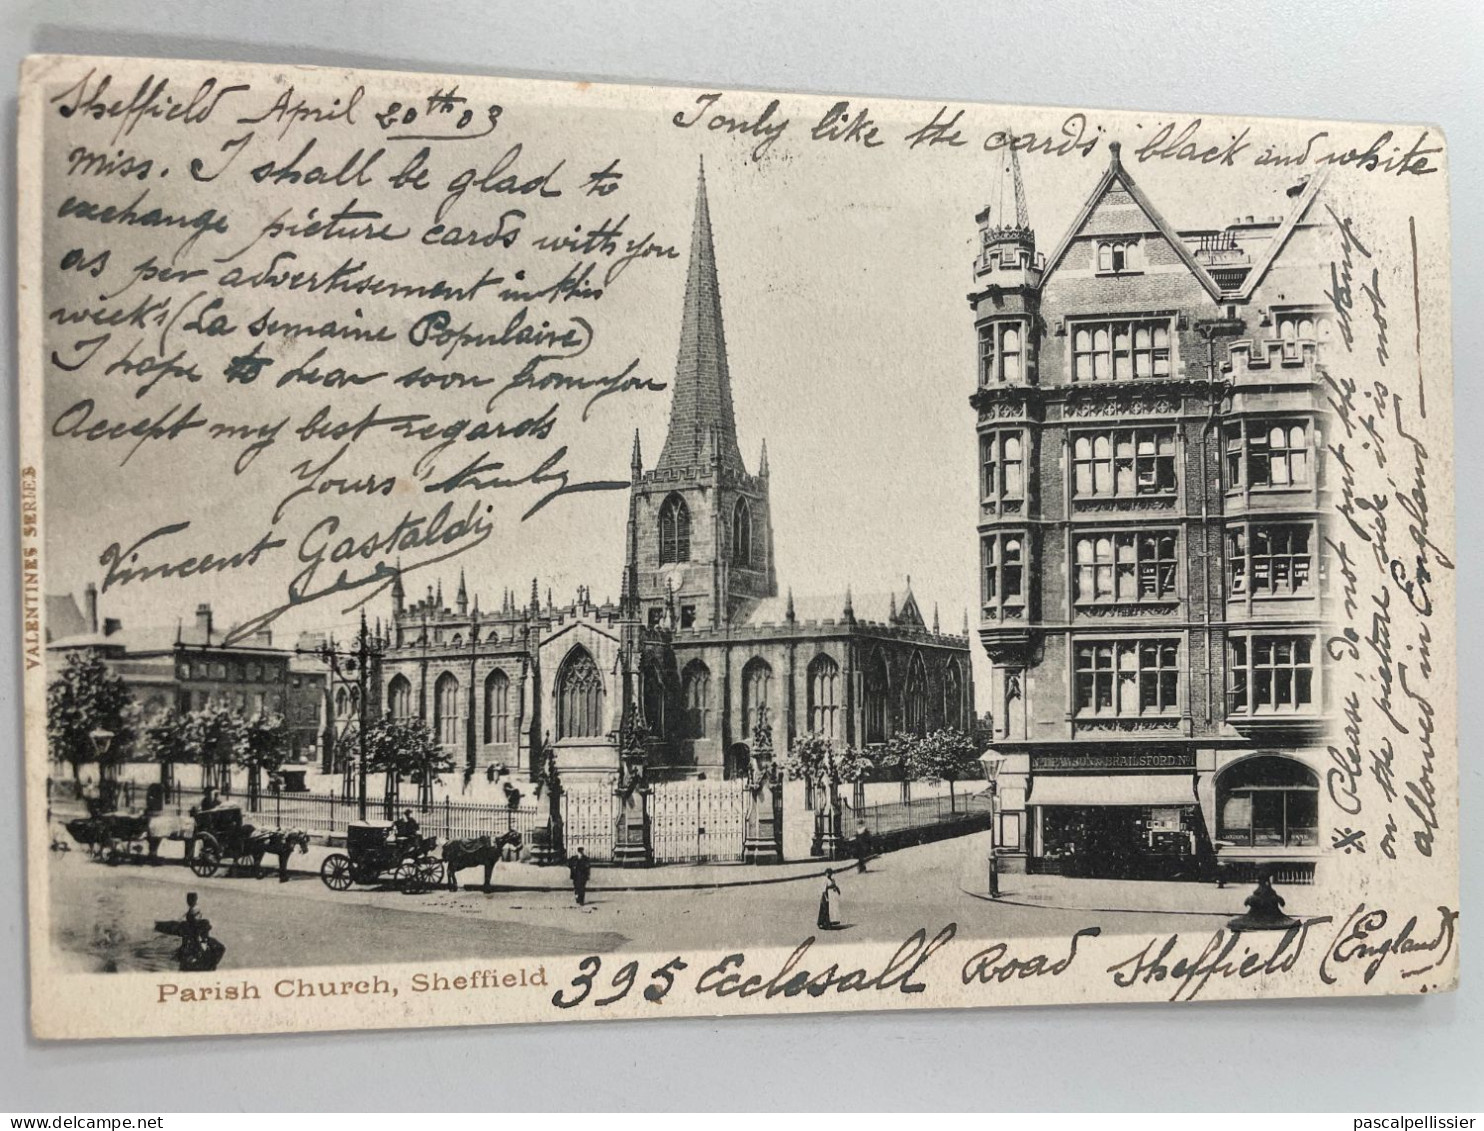 Sheffield April 20th 03
I only like the cards black and white
miss. I shall be glad to
exchange picture cards with you
as per advertisement in this
week's (La Semaine Populaire)
I hope to hear soon from you
Accept my best regards
Yours truly
Vincent Gastaldi
※ Please, do not put the stamp
on the picture side, it is not
allowed in England
VALENTINE'S SERIES
BRAILSFORD
Parish Church, Sheffield
395 Ecclesall Road Sheffield (England)
delcampe.net
pascalpellissier